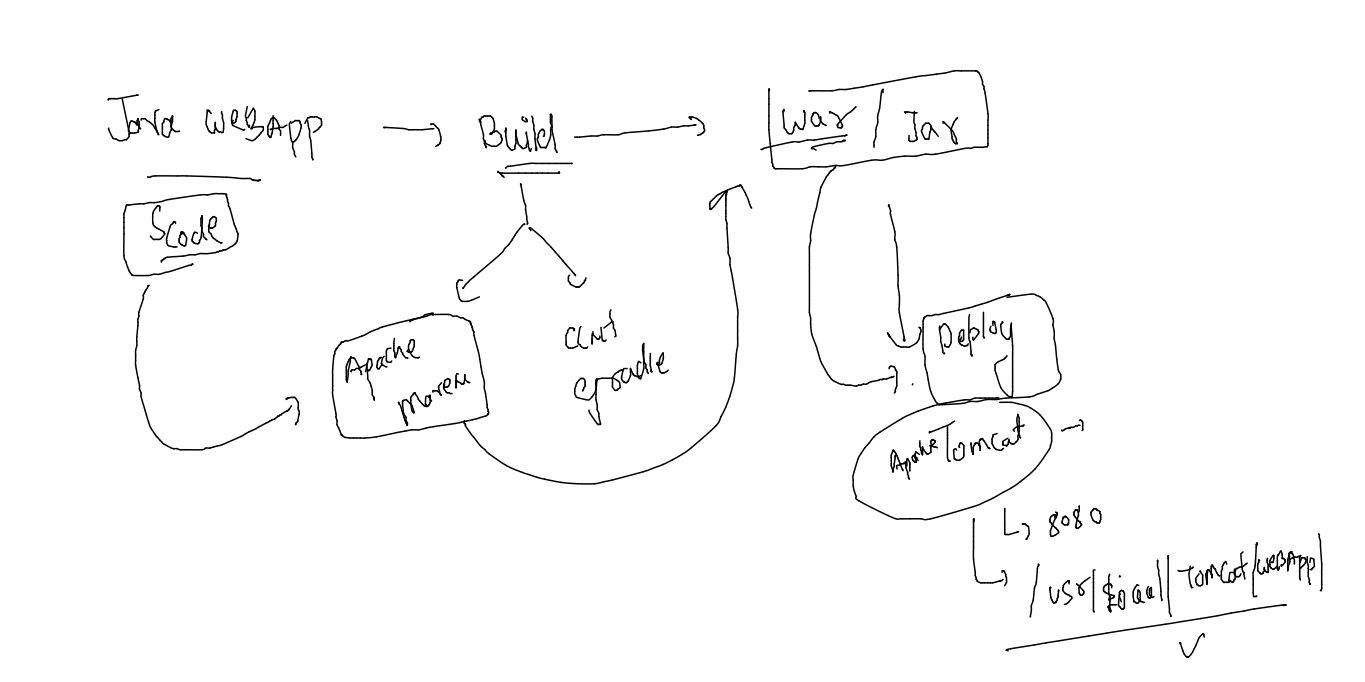 Java WEBAPP
Build
War / Jar
Scode
Apache
Maven
gradle
Deploy
Apache Tomcat
8080
/usr/ /Tomcat/WEBAPP/